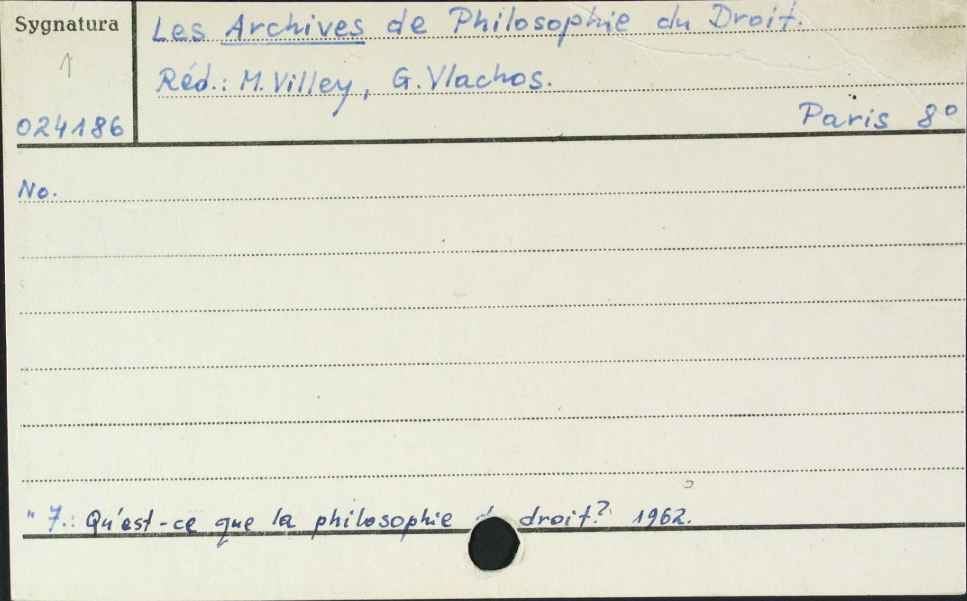 Sygnatura
Les Archives de Philosophie du Droit.
Réd.: M. Villey, G. Vlachos.
024186
Paris 8°
No.
" 7.: Qu'est-ce que la philosophie droit? 1962.